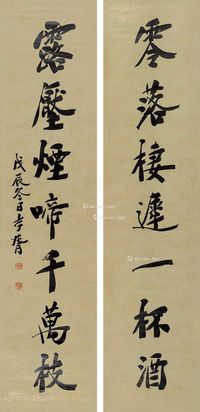 零落棲遲一杯酒
露壓煙啼千萬枝
戊辰冬日孝胥